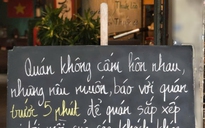 Quán không cấm hôn nhau,
nhưng nếu muốn, báo với quán
trước 5 phút để quán sắp xếp